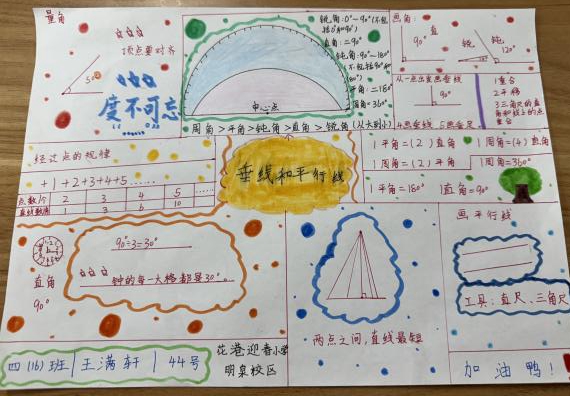 量角
顶点要对齐
50°
度不可忘
中心点
锐角:0°~90°(不包括0和90°)
直角:=90°
钝角:90°~180°
不包括90°和
平角:=180°
周角=360°
周角>平角>钝角>直角>锐角(从大到小)
画角:
90°
直
锐
钝
120°
从一点出发画垂线
90°
1重合
2平移
3三角尺的直
4画垂线
经过点的规律
+1+2+3+4+5……
点数 2 3 4 5 ……
1 3 10
垂线和平行线
1平角=(2)直角
1周角=(4)直角
1周角=(2)平角
1周角=360°
1平角=180°
1直角=90°
直角
90°
90°÷3=30°
钟的每一大格都是30°。
两点之间,直线最短
画平行线
工具:直尺、三角尺
四(16)班 王满轩 44号
花港迎春小学
明泉校区
加油鸭!